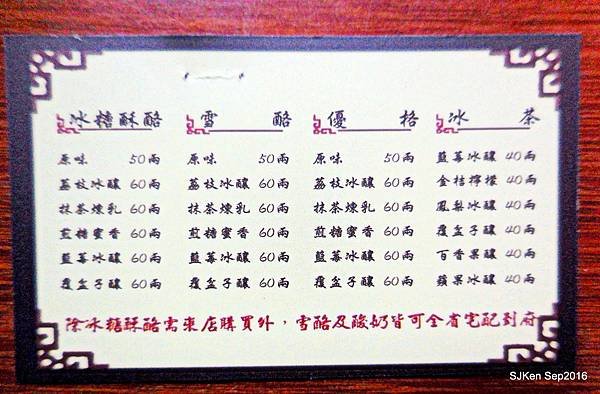 冰糖酥酪 雪酪 優格 冰茶
原味 50兩 原味 50兩 原味 50兩 藍莓冰釀 40兩
荔枝冰釀 60兩 荔枝冰釀 60兩 荔枝冰釀 60兩 金桔檸檬 40兩
抹茶煉乳 60兩 抹茶煉乳 60兩 抹茶煉乳 60兩 鳳梨冰釀 40兩
煎糖蜜香 60兩 煎糖蜜香 60兩 煎糖蜜香 60兩 覆盆子釀 40兩
藍莓冰釀 60兩 藍莓冰釀 60兩 藍莓冰釀 60兩 百香果釀 40兩
覆盆子釀 60兩 覆盆子釀 60兩 覆盆子釀 60兩 蘋果冰釀 40兩
除冰糖酥酪需來店購買外，雪酪及酸奶皆可全省宅配到府
SJKen Sep2016